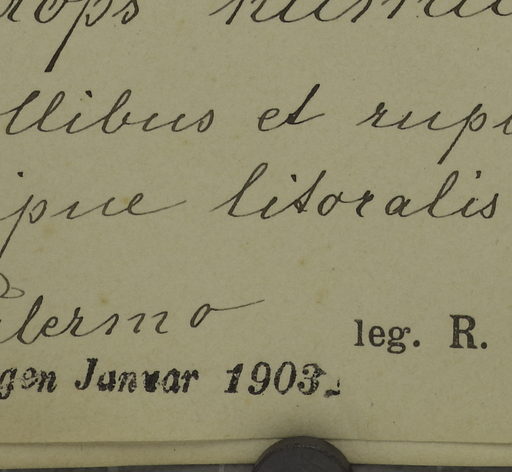 rops humil
llibus et rupi
ipue litoralis
alermo
leg. R.
gen Januar 1903.